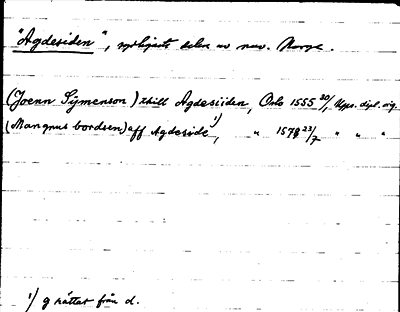 "Agdesiden", sydligaste delen av nuv. Norge.
(Joenn Sÿmenson) thill Agdesiiden, Oslo 1555 20/1, Upps. dipl. sig.
(Mangnus bordsen) aff Agdeside 1), " 1578 23/7 " " "
1) g rättat från d.